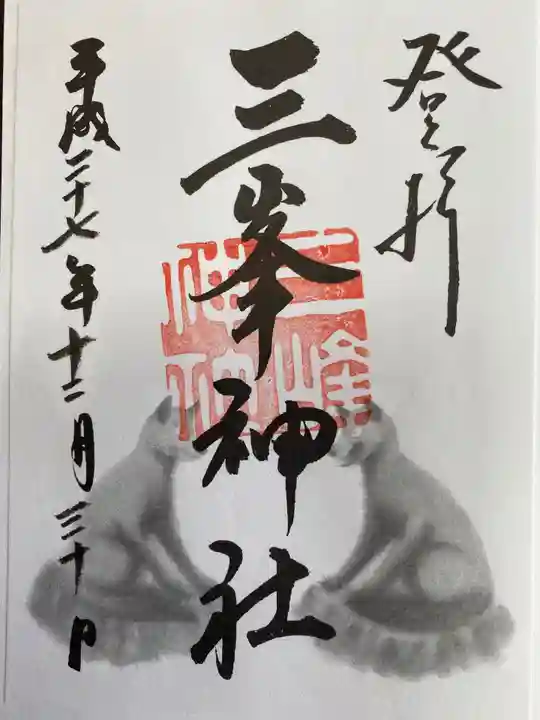 登拝
三峯神社
平成二十七年十二月三十日